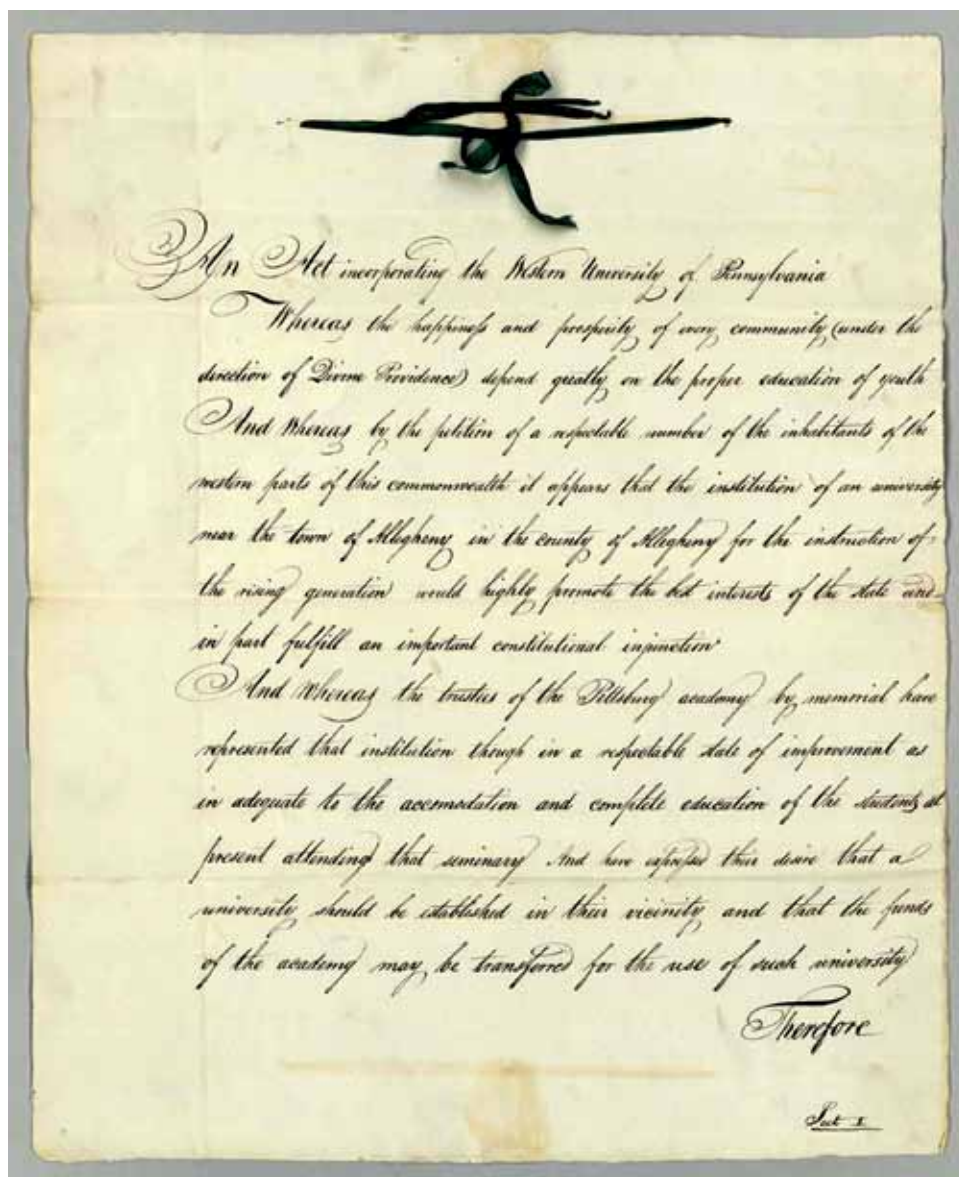 An Act incorporating the Western University of Pennsylvania
Whereas the happiness and prosperity of every community (under the
direction of Divine Providence) depend greatly on the proper education of youth
And Whereas by the petition of a respectable number of the inhabitants of the
western parts of this commonwealth it appears that the institution of an university
near the town of Allegheny in the county of Allegheny for the instruction of
the rising generation would highly promote the best interests of the state and
in part fulfill an important constitutional injunction
And whereas the trustees of the Pittsburg academy by memorial have
represented that institution though in a respectable state of improvement as
in adequate to the accomodation and complete education of the students at
present attending that seminary And have expressed their desire that a
university should be established in their vicinity and that the funds
of the academy may be transferred for the use of such university
Therefore
Sect 1